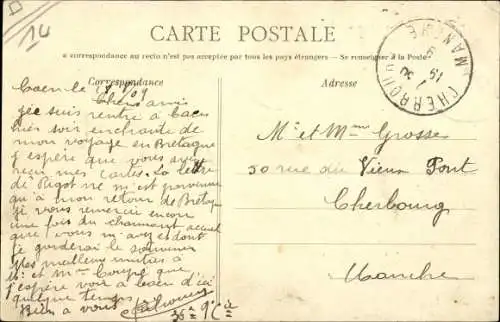 14
CARTE POSTALE
La correspondance au recto n'est pas acceptée par tous les pays étrangers — Se renseigner à la Poste
Correspondance
Adresse
CHERBOURG
MANCHE
Caen le 09
Chers amis
je suis rentré à Caen
hier soir enchanté de
mon voyage en Bretagne
j'espère que vous avez
reçu mes cartes. La lettre
de Bigot ne m'est parvenue
qu'à mon retour de Bretagne
je vous remercie encore
une fois du charmant accueil
que vous m'avez et dont
je garderai le souvenir
Mes meilleurs amitiés à
Mr et Mme que
j'espère voir à Caen d'ici
quelque temps
Bien à vous
36e
Mr et Mme Grosse
50 rue du Vieux Pont
Cherbourg
Manche